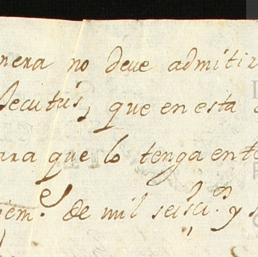 nera no deve admitir
secutus, que en esta
ara que lo tenga ent
iem.e de mil seisci.os y s